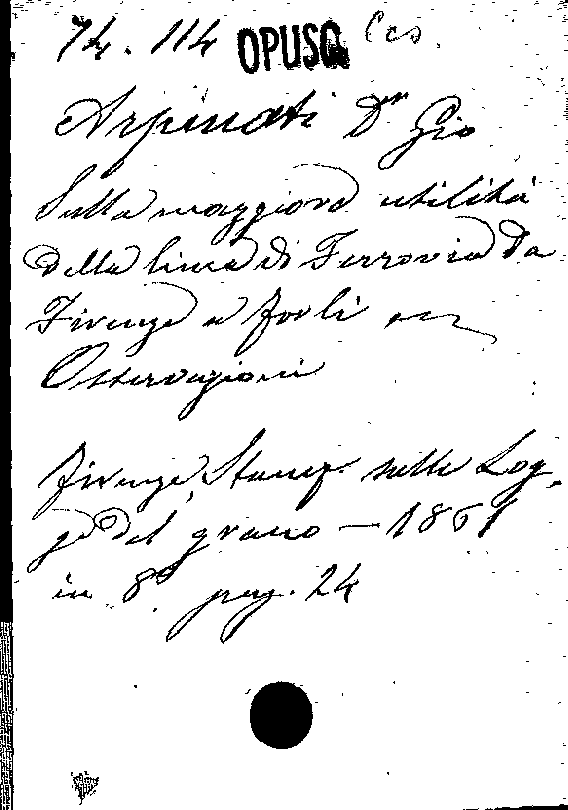 74. 114 OPUSC. Ces.
Arpinati Dr. Gio
Sulla maggiore utilità
della linea di Ferrovia da
Firenze a Forlì
Osservazioni
Firenze, Stamp. sulle Log-
ge del grano — 1861
in 8° pag. 24